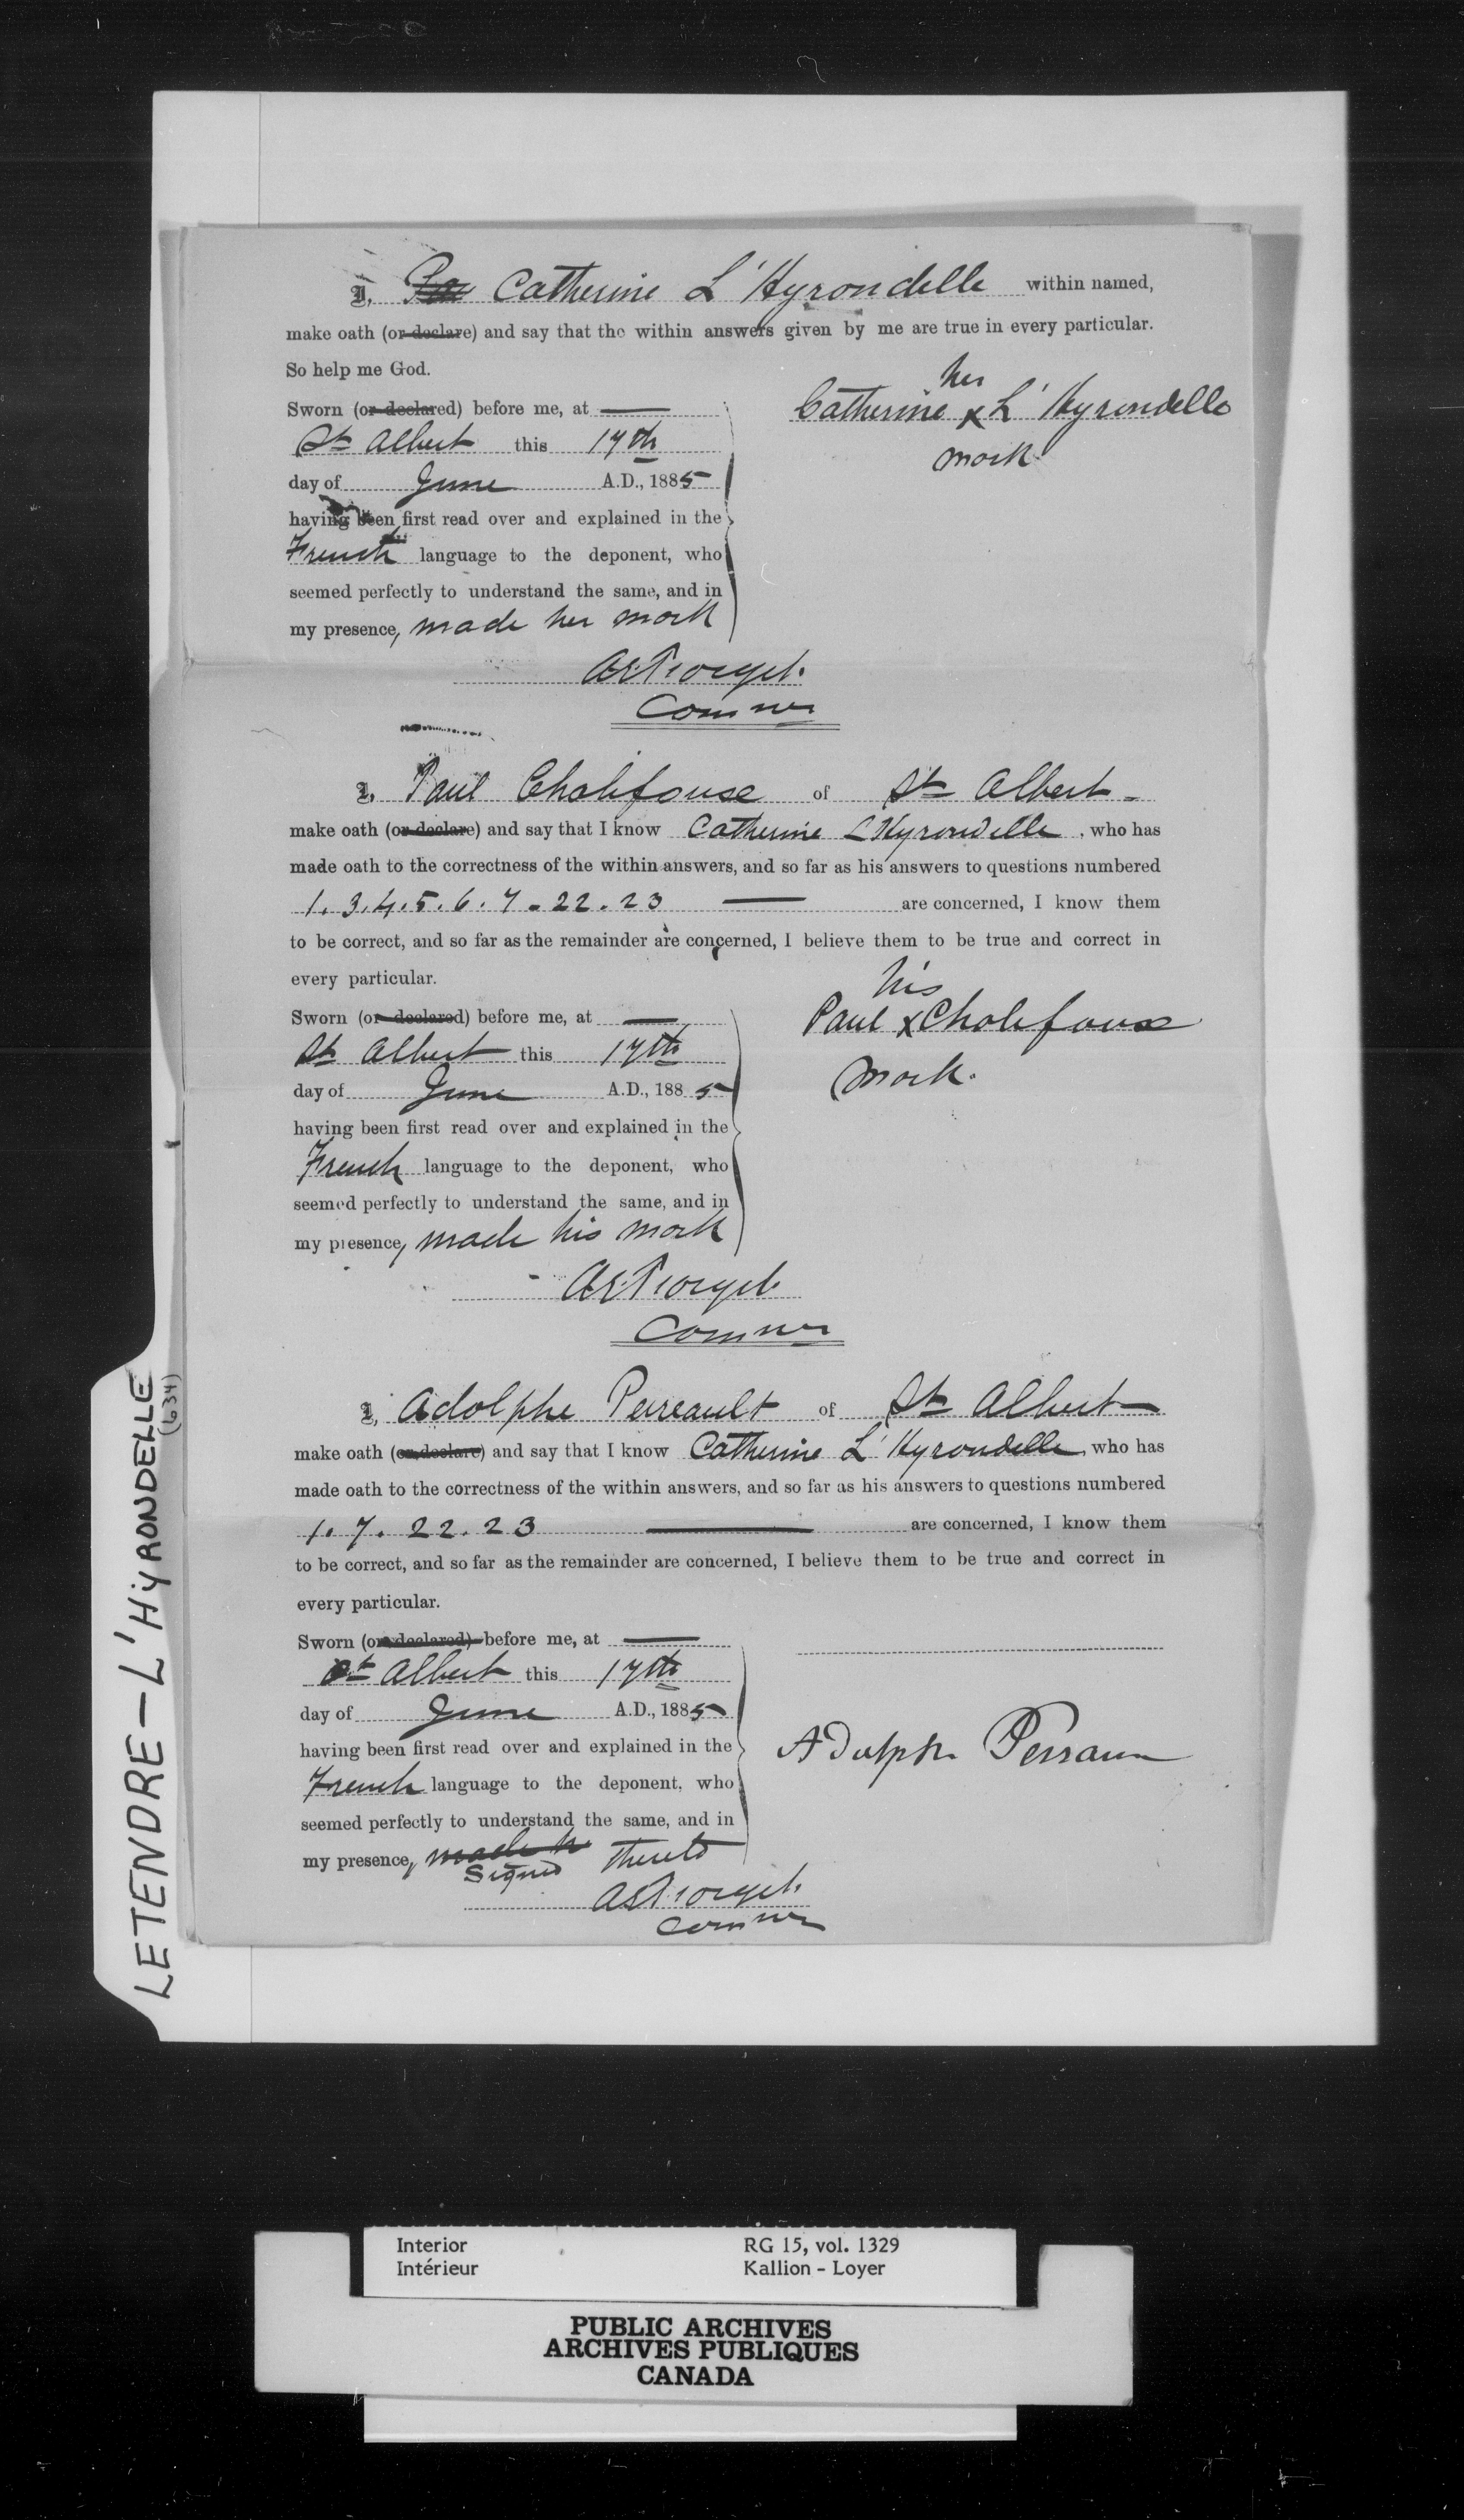 I, Catherine L'Hyrondelle within named,
make oath (or declare) and say that the within answers given by me are true in every particular.
So help me God.
her
Catherine x L'Hyrondelle
mark
Sworn (or declared) before me, at —
St Albert this 17th
day of June A.D., 1885
having been first read over and explained in the
French language to the deponent, who
seemed perfectly to understand the same, and in
my presence, made her mark
Commr
I, Paul Cholifouse of St Albert -
make oath (or declare) and say that I know Catherine L'Hyrondelle, who has
made oath to the correctness of the within answers, and so far as his answers to questions numbered
1. 3. 4. 5. 6. 7 - 22 . 23 — are concerned, I know them
to be correct, and so far as the remainder are concerned, I believe them to be true and correct in
every particular.
his
Paul x Cholifoux
mark.
Sworn (or declared) before me, at —
St Albert this 17th
day of June A.D., 1885
having been first read over and explained in the
French language to the deponent, who
seemed perfectly to understand the same, and in
my presence, made his mark
Commr
I, Adolphe Perreault of St Albert —
make oath (or declare) and say that I know Catherine L'Hyrondelle, who has
made oath to the correctness of the within answers, and so far as his answers to questions numbered
1. 7. 22. 23 — are concerned, I know them
to be correct, and so far as the remainder are concerned, I believe them to be true and correct in
every particular.
Sworn (or declared) before me, at —
St Albert this 17th
day of June A.D., 1885
having been first read over and explained in the
French language to the deponent, who
seemed perfectly to understand the same, and in
my presence, made h
Signed thereto
Commr
LETENDRE - L'HYRONDELLE
(634)
Interior RG 15, vol. 1329
Intérieur Kallion - Loyer
PUBLIC ARCHIVES
ARCHIVES PUBLIQUES
CANADA